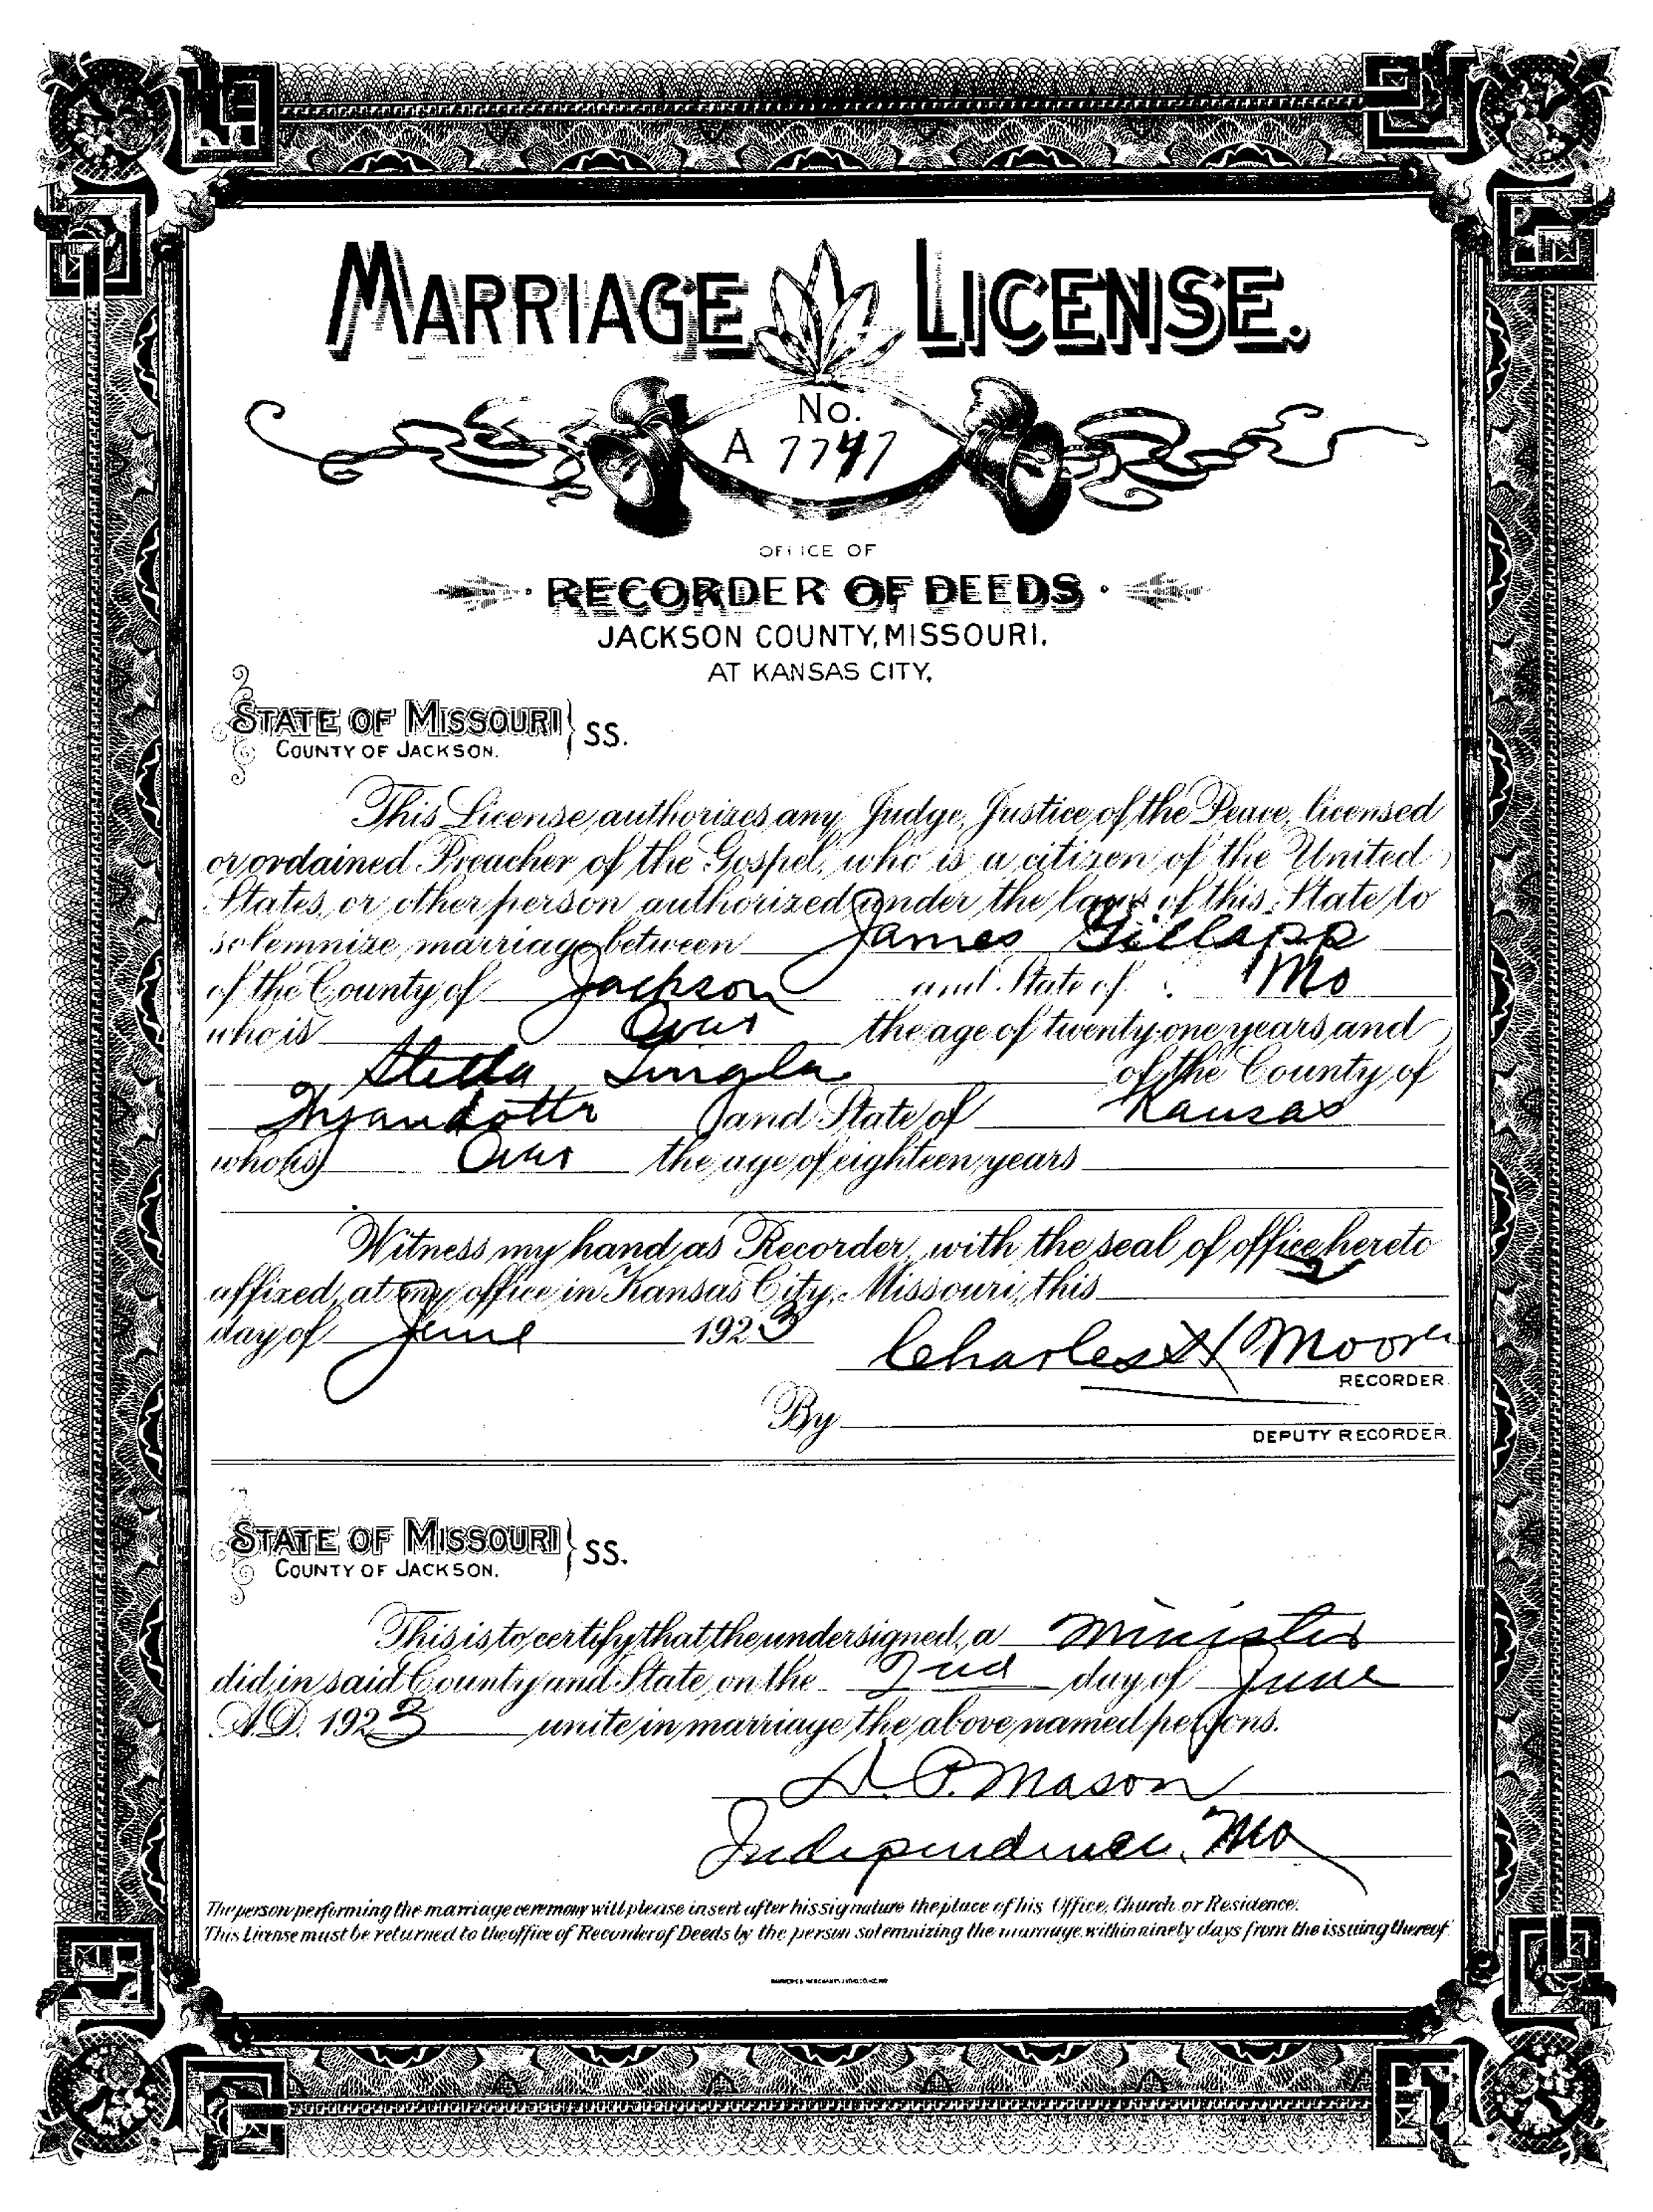 MARRIAGE LICENSE.
No.
A 7747
OFFICE OF
RECORDER OF DEEDS
JACKSON COUNTY, MISSOURI.
AT KANSAS CITY,
STATE OF MISSOURI
COUNTY OF JACKSON. } SS.
This License authorizes any Judge, Justice of the Peace, licensed
or ordained Preacher of the Gospel, who is a citizen of the United
States, or other person authorized under the laws of this State to
solemnize marriage between James Gillapp
of the County of Jackson and State of Mo
who is Over the age of twenty-one years and
Stella of the County of
Wyandotte and State of Kansas
who is Over the age of eighteen years
Witness my hand as Recorder, with the seal of office hereto
affixed, at my office in Kansas City, Missouri, this 2
day of June 1923
Charles H Moore
RECORDER.
By
DEPUTY RECORDER.
STATE OF MISSOURI
COUNTY OF JACKSON. } SS.
This is to certify that the undersigned, a Minister
did, in said County and State, on the 2nd day of June
A.D. 1923 unite in marriage the above named persons.
P. Mason
Independence, Mo
The person performing the marriage ceremony will please insert after his signature the place of his Office, Church or Residence.
This License must be returned to the office of Recorder of Deeds by the person solemnizing the marriage within ninety days from the issuing thereof.